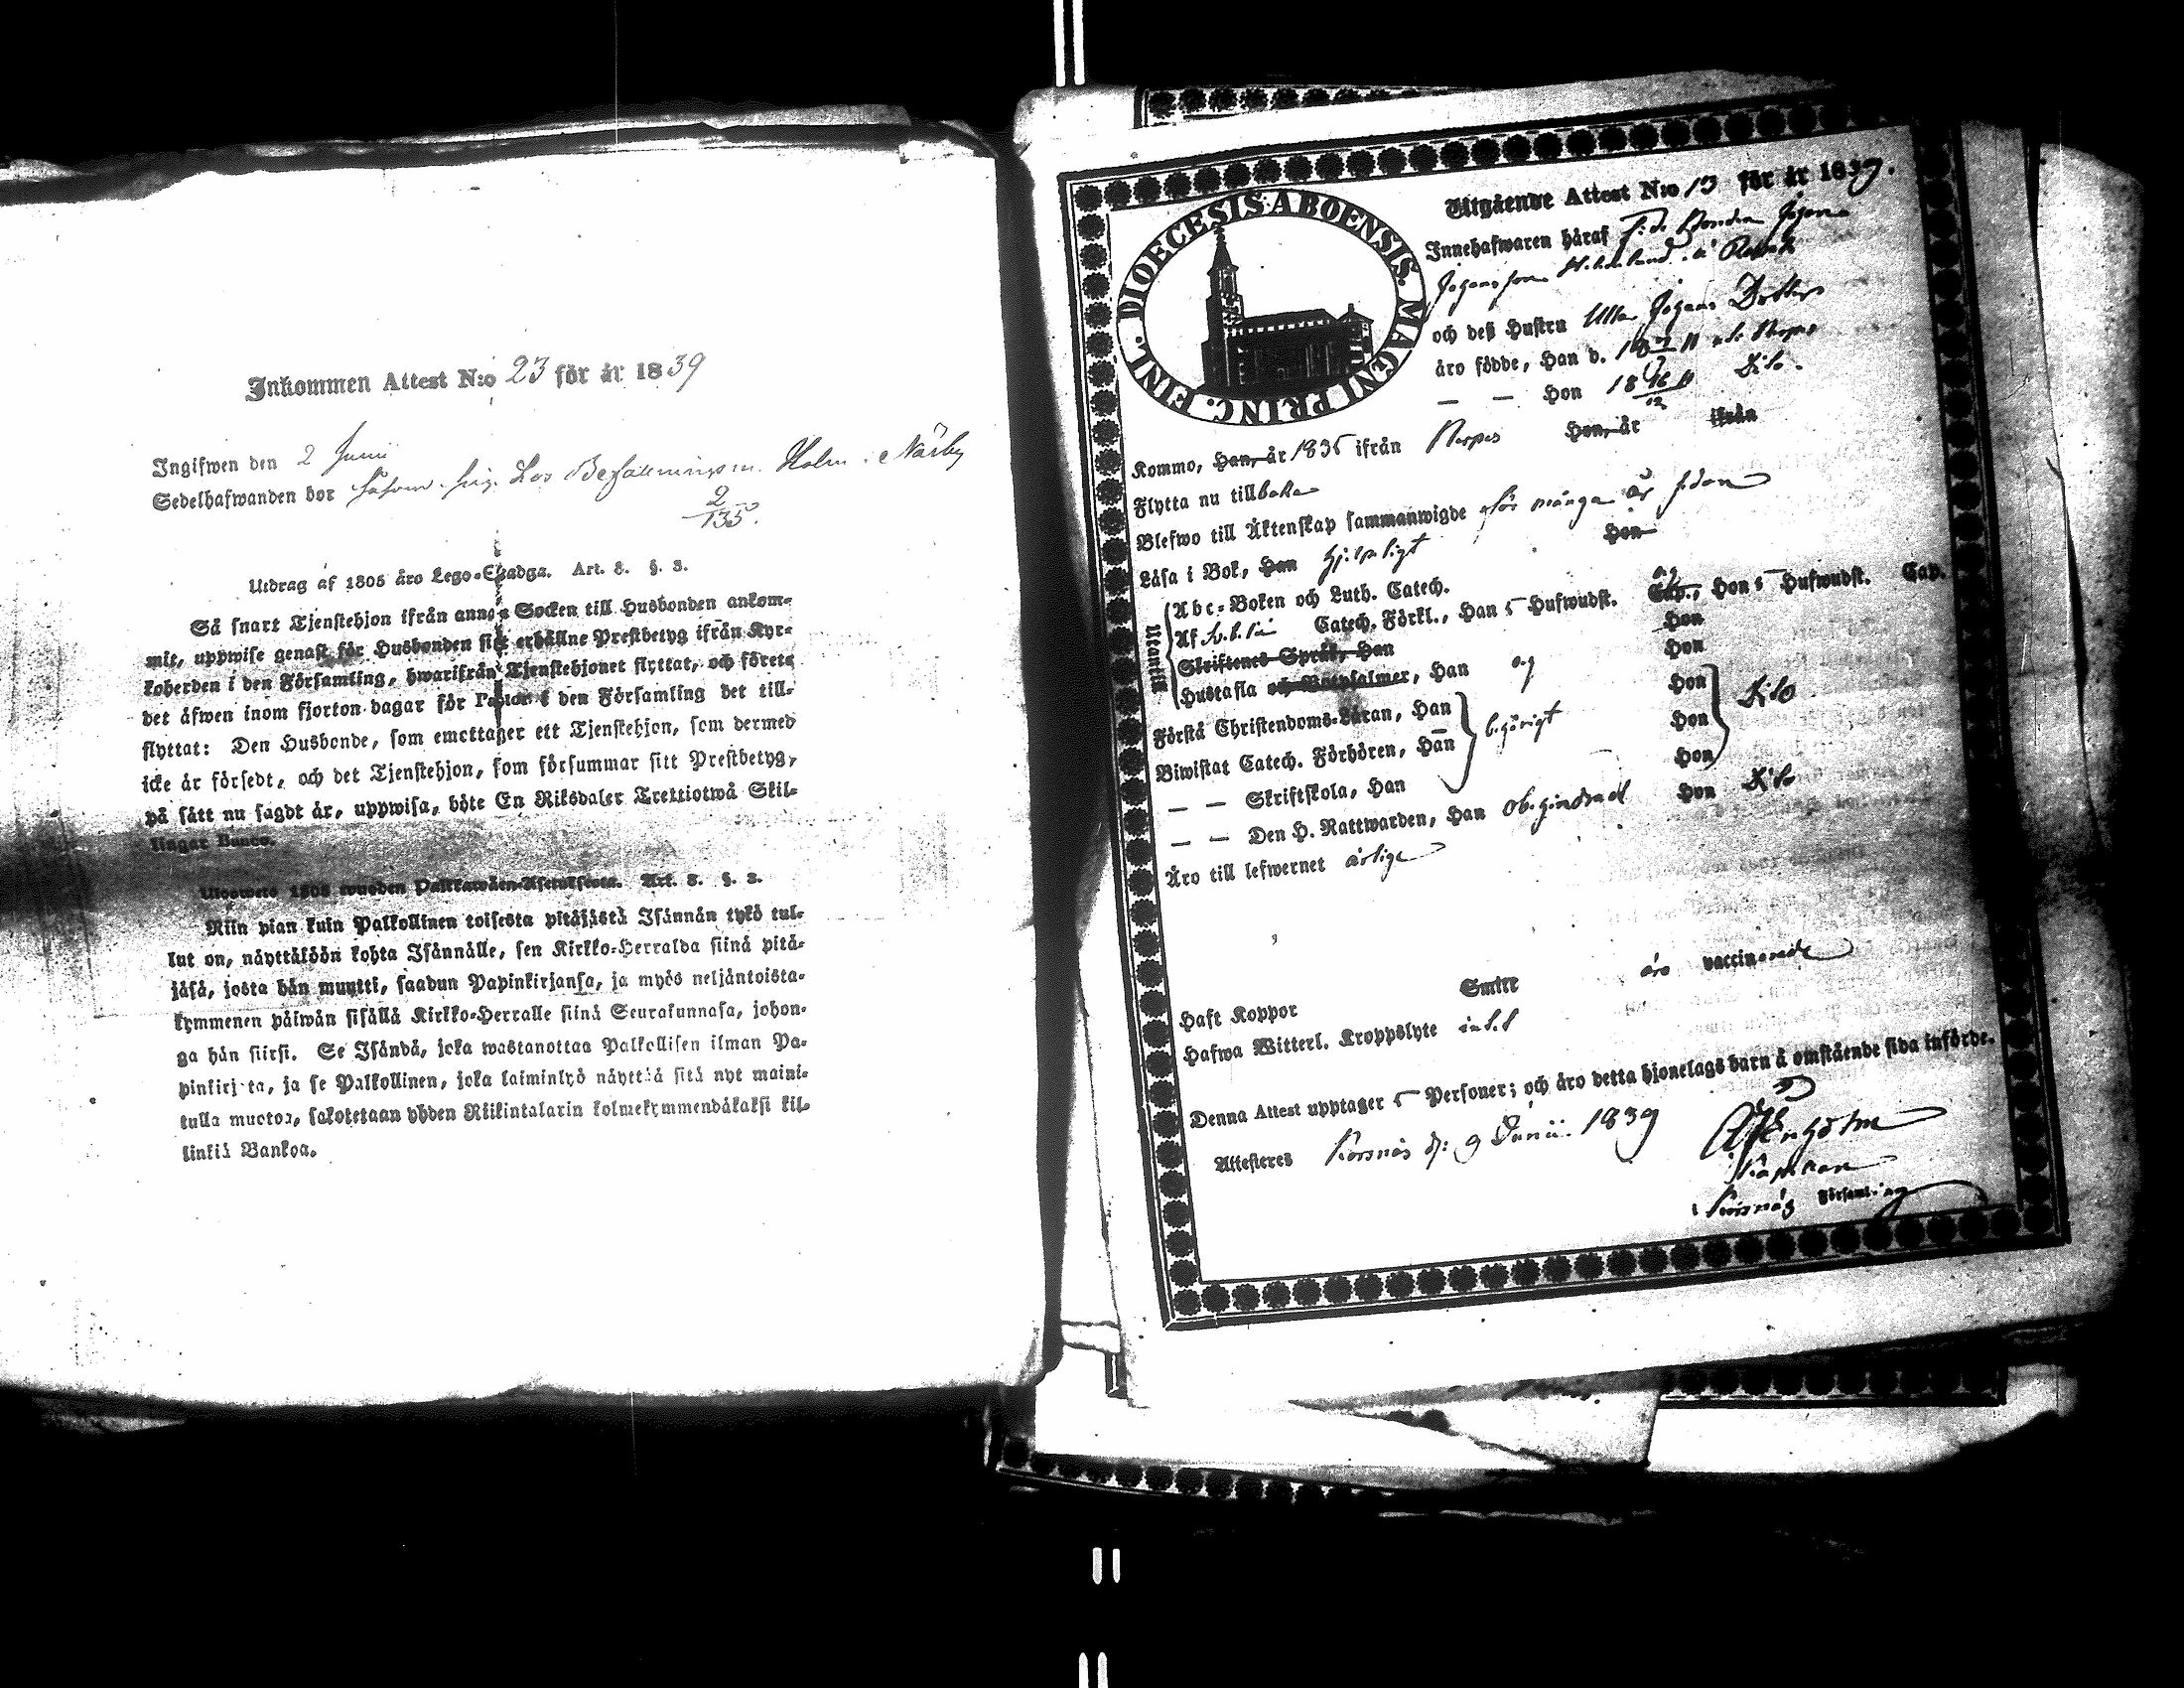 Inkommen Attest N:o 23 för år 1839
Ingifwen den 2 Junii
Sedelhafwanden bor såsom hos Befallningsm. Holm i Nårby
2/135.
Utdrag af 1805 åro Lego-Stadga. Art. 8. §. 3.
Så snart Tjenstehjon ifrån annan Socken till Husbonden ankom-
mit, uppwise genast för Husbonden sitt erhållne Prestbetyg ifrån Kyr-
koherden i den Församling, hwarifrån Tjenstehjonet flyttat, och förete
det äfwen inom fjorton dagar för Pastor i den Församling det till-
flyttat: Den Husbonde, som emottager ett Tjenstehjon, som dermed
icke är försedt, och det Tjenstehjon, som försummar sitt Prestbetyg,
på sätt nu sagdt är, uppwisa, böte En Riksdaler Trettiotwå Skil-
lingar Banco.
Ulosweto 1805 wuoden Palkkawäen-Asetuksesta. Art. 8. §. 3.
Niin pian kuin Palkollinen toisesta pitäjästä Isännän tykö tul-
lut on, näyttäköön kohta Isännälle, sen Kirkko-Herralda siinä pitä-
jäsä, josta hän muutti, saadun Papinkirjansa, ja myös neljäntoista-
kymmenen päiwän sisällä Kirkko-Herralle siinä Seurakunnasa, johon-
ga hän siirsi. Se Isändä, joka wastanottaa Palkollisen ilman Pa-
pinkirjata, ja se Palkollinen, joka laiminlyö näyttää sitä nyt maini-
tulla muotoa, sakotetaan yhden Riikintalarin kolmekymmendäkaksi kil-
linkiä Bankoa.
DIOECESIS ABOENSIS. MAGNI PRINC. FINL.
Utgående Attest N:o 13 för år 1839.
Innehafwaren häraf F. d. Bonden Johan
Johansson å
och deß Hustru Ulla Johans Dotter
äro födde, Han d.
— — Hon 18 Dito.
Kommo, Han, år 1835 ifrån Nerpes Hon, år ifrån
Flytta nu tillbaka
Blefwo till Äktenskap sammanwigde för många år sedan
Läsa i Bok, Han hjelpligt Hon
Utantill
Abc-Boken och Luth. Catech.
Af Catech. Förkl., Han 5 Hufwudst. Cap., Hon 5 Hufwudst. Cap.
Skriftenes Språk, Han Hon
Hustafla och Botpsalmer, Han og Hon
Förstå Christendoms-Läran, Han Hon
Biwistat Catech. Förhören, Han behörigt Hon Dito
— — Skriftskola, Han Hon
— — Den H. Nattwarden, Han obehindrad Hon Dito
Äro till lefwernet ärlige
Haft Koppor Smitte äro vaccinerade
Hafwa Witterl. Kroppslyte intet
Denna Attest upptager 5 Personer; och äro detta hjonelags barn å omstående sida införde.
Attesteres Korsnäs d: 9 Junii 1839
Kapellan
i Korsnäs Församling